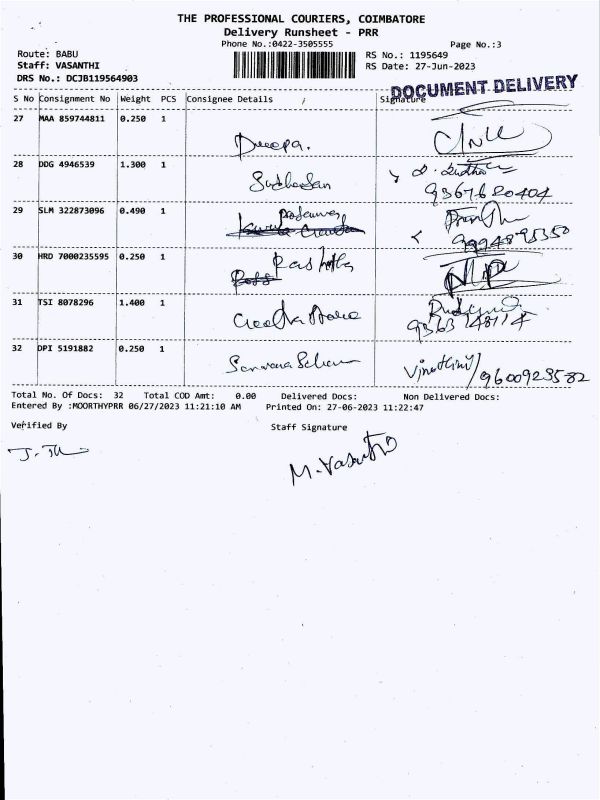 THE PROFESSIONAL COURIERS, COIMBATORE
Delivery Runsheet - PRR
Phone No.:0422-3505555 Page No.:3
Route: BABU RS No.: 1195649
Staff: VASANTHI RS Date: 27-Jun-2023
DRS No.: DCJB119564903
DOCUMENT DELIVERY
S No Consignment No Weight PCS Consignee Details Signature
27 MAA 859744811 0.250 1
Deepa.
28 DDG 4946539 1.300 1
9367620404
29 SLM 322873096 0.490 1
9994895350
30 HRD 7000235595 0.250 1
31 TSI 8078296 1.400 1
9363148114
32 DPI 5191882 0.250 1
Vinothini / 9600923582
Total No. Of Docs: 32 Total COD Amt: 0.00 Delivered Docs: Non Delivered Docs:
Entered By :MOORTHYPRR 06/27/2023 11:21:10 AM Printed On: 27-06-2023 11:22:47
Verified By Staff Signature
M. Vasanthi